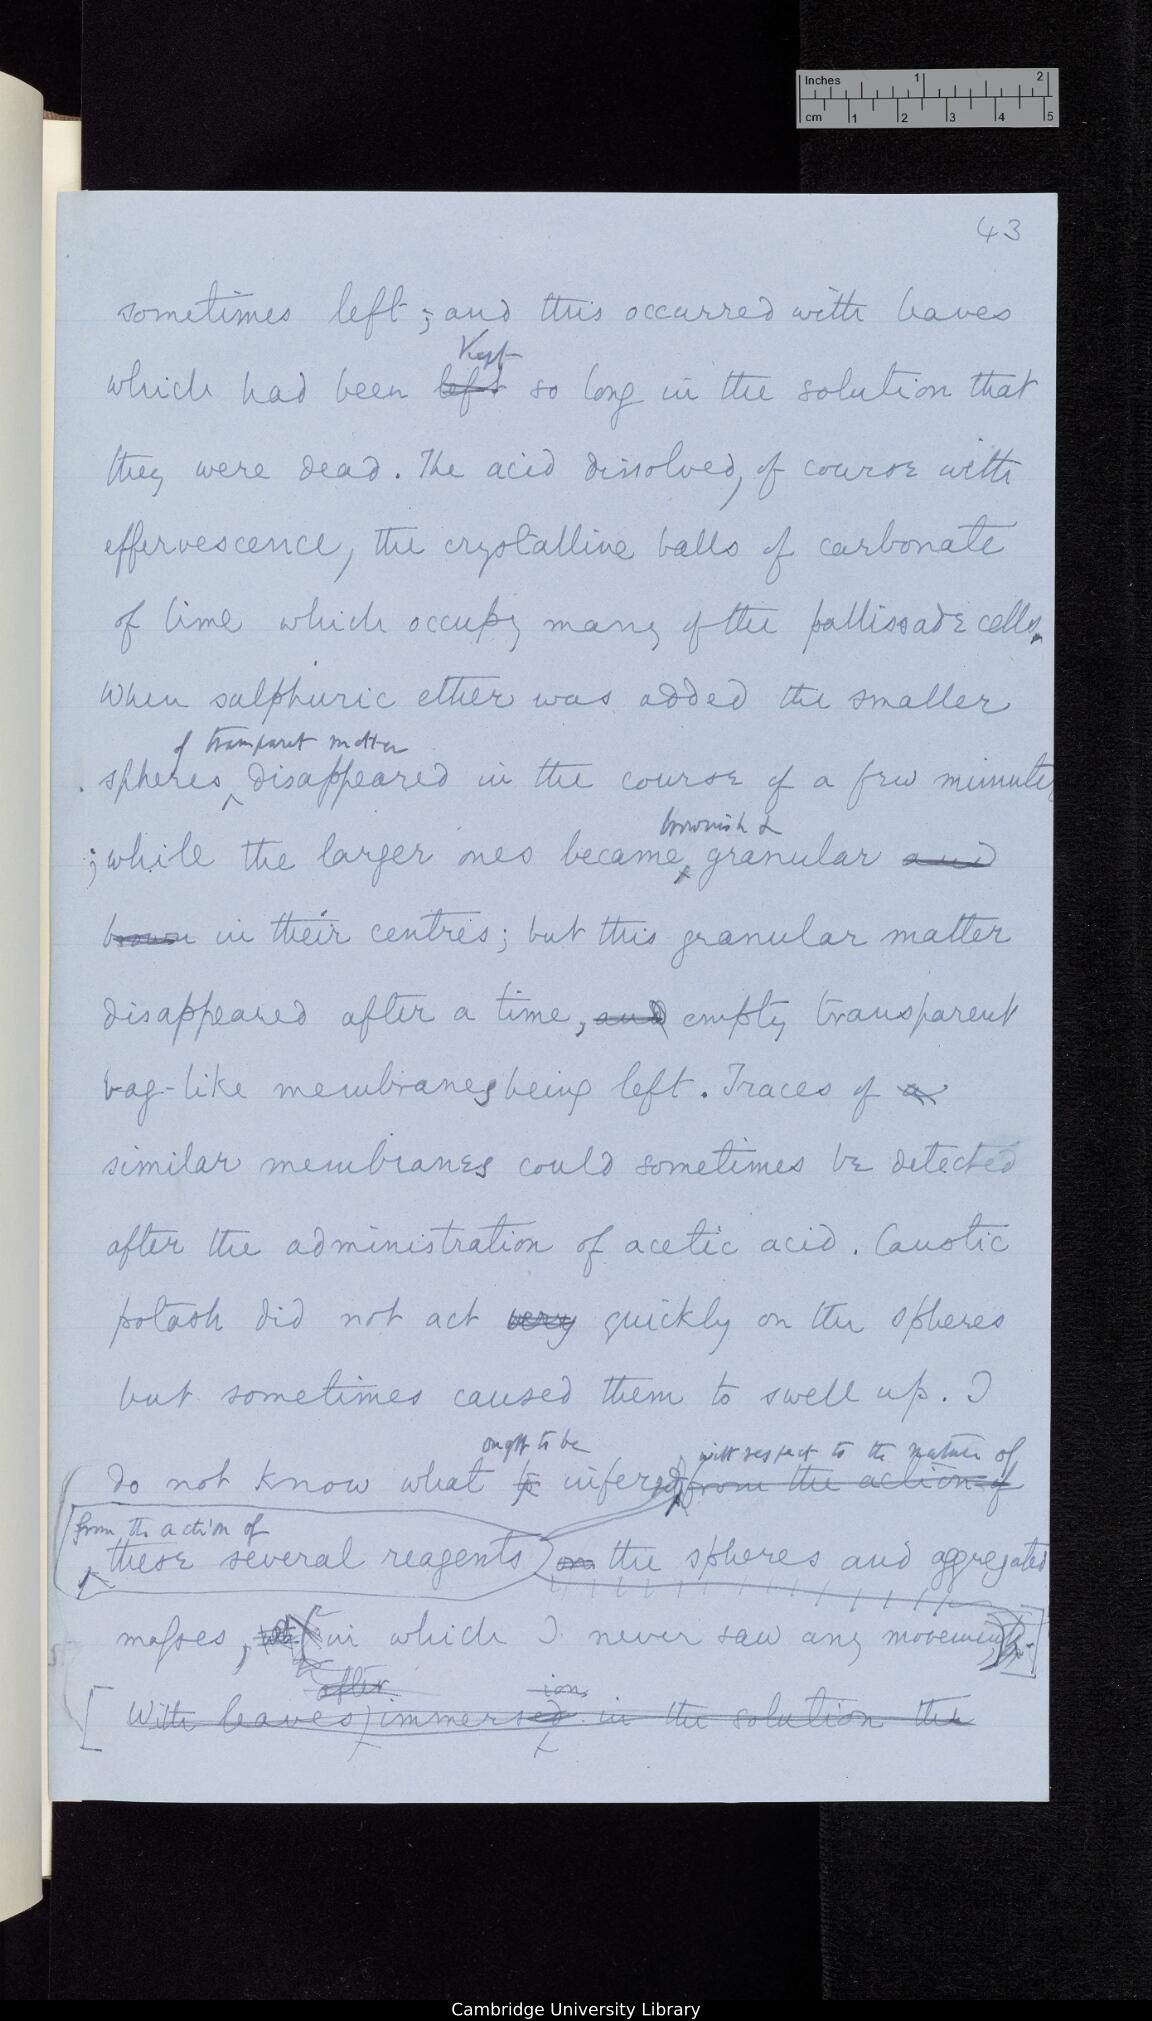 Inches 1 2
cm 1 2 3 4 5
43
sometimes left; and this occurred with leaves
Kept
which had been left so long in the solution that
they were dead. The acid dissolved, of course with
effervescence, the crystalline balls of carbonate
of lime which occupy many of the pallissade cells.
When sulphuric ether was added the smaller
of transparent matter
spheres disappeared in the course of a few minutes
brownish &
; while the larger ones became granular and
brown in their centres; but this granular matter
disappeared after a time, and empty transparent
bag-like membranes being left. Traces of a
similar membranes could sometimes be detected
after the administration of acetic acid. Caustic
potash did not act very quickly on the spheres
but sometimes caused them to swell up. I
ought to be with respect to the nature of
do not know what to infer from the action of
from the action of
these several reagents on the spheres and aggregated
masses, in which I never saw any movement
after ion
With leaves immersed in the solution the
Cambridge University Library